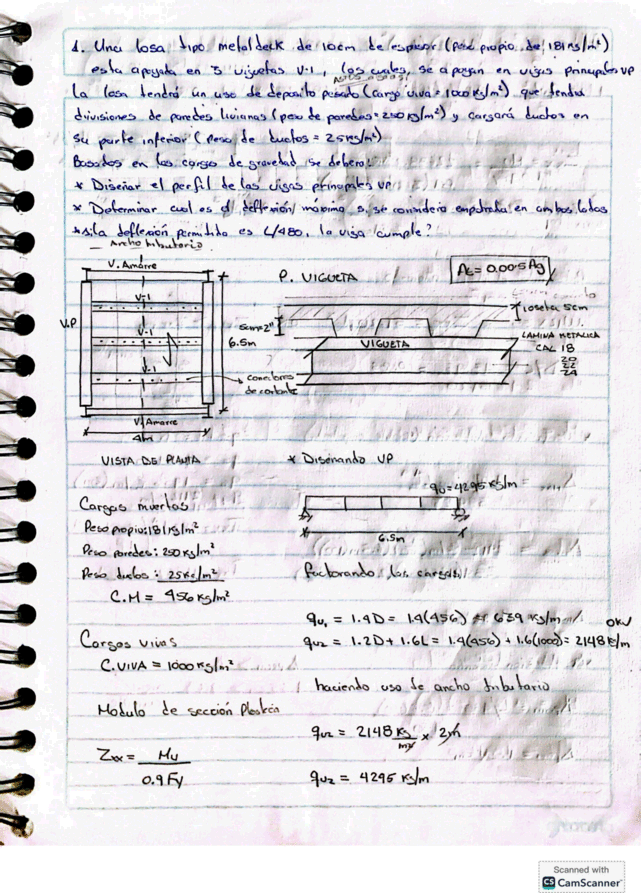 1. Una losa tipo metaldeck de 10cm de espesor (peso propio de 181 kg/m²)
esta apoyada en 3 viguetas V-1, los cuales, se apoyan en vigas principales VP
La losa tendrá un uso de deposito pesado (carga viva = 1000 kg/m²) que tendra
divisiones de paredes livianas (peso de paredes = 250 kg/m²) y cargará ductos en
su parte inferior (peso de ductos = 25 kg/m²)
Basados en las cargas de gravedad se debera:
* Diseñar el perfil de las vigas principales VP
* Determinar cual es el deflexión máxima si se considera empotrada en ambos lados
* si la deflexión permitida es L/480, la viga cumple?
Ancho tributario
V. Amarre
P. VIGUETA
At = 0.005 Ag
V-1
loseta 5cm
5cm=2"
V.P
V-1
6.5m
VIGUETA
LAMINA METALICA
CAL 18
20
22
24
V-1
conectores
de cortante
V. Amarre
4m
VISTA DE PLANTA
* Diseñando VP
qu = 4295 kg/m
Cargas muertas
Peso propio: 181 kg/m²
6.5m
Peso paredes: 250 kg/m²
Peso ductos: 25 kg/m²
factorando las cargas
C.M = 456 kg/m²
qu₁ = 1.4D = 1.4(456) = 639 kg/m
okv
Cargas vivas
qu₂ = 1.2D + 1.6L = 1.4(456) + 1.6(1000) = 2148 k/m
C.VIVA = 1000 kg/m²
haciendo uso de ancho tributario
Modulo de sección Plastica
qu₂ = 2148 kg/m² x 2m
Zxx = Mu / 0.9Fy
qu₂ = 4295 kg/m
Scanned with
CS CamScanner